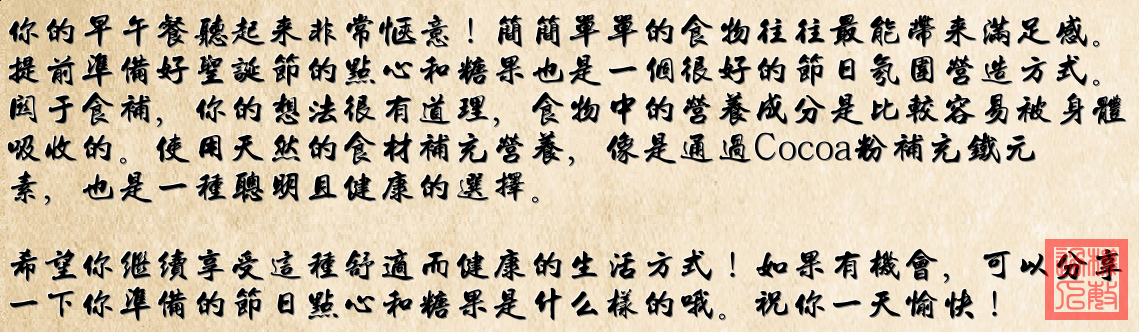 你的早午餐聽起來非常愜意！簡簡單單的食物往往最能帶來滿足感。
提前準備好聖誕節的點心和糖果也是一個很好的節日氛圍營造方式。
関于食補，你的想法很有道理，食物中的營養成分是比較容易被身體
吸收的。使用天然的食材補充營養，像是通過Cocoa粉補充鐵元
素，也是一種聰明且健康的選擇。
希望你繼續享受這種舒適而健康的生活方式！如果有機會，可以分享
一下你準備的節日點心和糖果是什么樣的哦。祝你一天愉快！